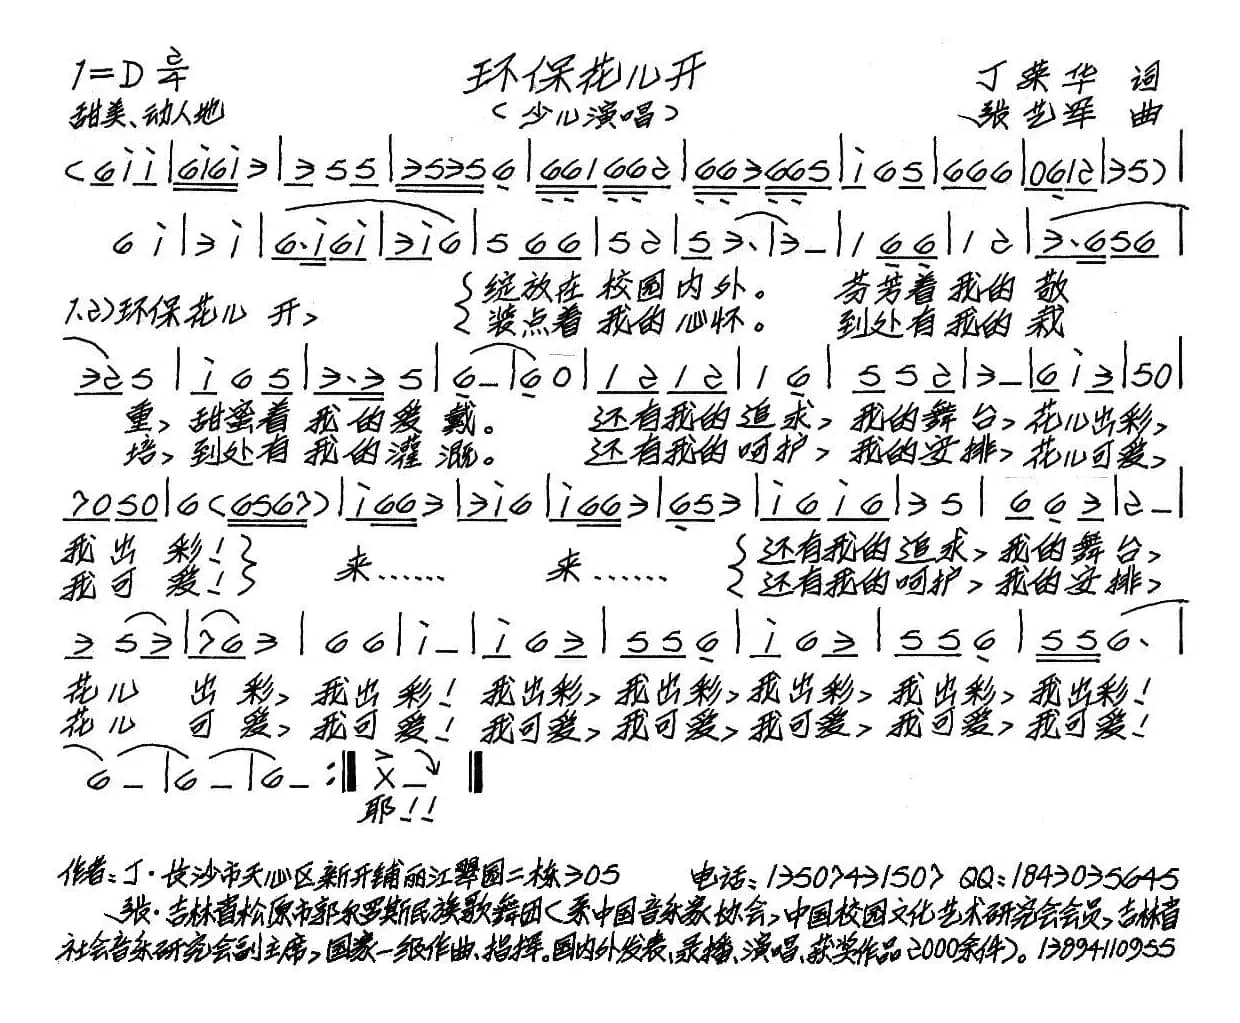 1=D 2/4 环保花儿开 丁荣华 词
甜美、动人地 （少儿演唱） 张艺军 曲
(6 i i | 6 i 6 i 3 | 3 5 5 | 3 5 3 5 6 | 6 6 1 6 6 2 | 6 6 3 6 6 5 | i 6 5 | 6 6 6 | 0 6 1 2 | 3 5) |
6 i | 3 i | 6. i 6 i | 3 i 6 | 5 6 6 | 5 2 | 5 3. | 3 – | 1 6 6 | 1 2 | 3. 6 5 6 |
绽放在 校园内外。 芬芳着 我的 敬
1.2)环保花儿 开,
装点着 我的 心怀。 到处有 我的 栽
3 2 5 | i 6 5 | 3. 3 5 | 6 – | 6 0 | 1 2 1 2 | 1 6 | 5 5 2 | 3 – | 6 i 3 | 5 0 |
重, 甜蜜着 我的爱 戴。 还有我的追求, 我的舞台, 花儿出彩,
培, 到处有 我的灌 溉。 还有我的呵护, 我的安排, 花儿可爱,
7 0 5 0 | 6 (6 5 6 7) | i 6 6 3 | 3 i 6 | i 6 6 3 | 6 5 3 | i 6 i 6 | 3 5 | 6 6 3 | 2 – |
我出 彩! 来…… 来…… 还有我的追求, 我的舞台,
我可 爱! 还有我的呵护, 我的安排,
3 5 3 | 7 6 3 | 6 6 | i – | i 6 3 | 5 5 6 | i 6 3 | 5 5 6 | 5 5 6. |
花儿 出彩, 我出彩! 我出彩, 我出彩, 我出彩, 我出彩, 我出彩!
花儿 可爱, 我可爱! 我可爱, 我可爱, 我可爱, 我可爱, 我可爱!
6 – | 6 – | 6 – :‖ X – ‖
耶!!
作者:丁·长沙市天心区新开铺丽江翠园二栋305 电话:13507431507 QQ:1843035645
张·吉林省松原市郭尔罗斯民族歌舞团(系中国音乐家协会,中国校园文化艺术研究会会员,吉林省
社会音乐研究会副主席,国家一级作曲、指挥。国内外发表、录播、演唱、获奖作品2000余件)。13894110955